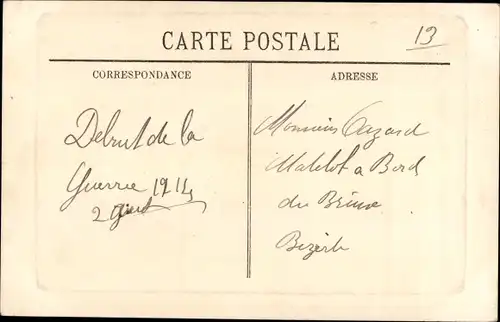 CARTE POSTALE
13
CORRESPONDANCE
Debut de la
Guerre 1914
2 Aout
ADRESSE
Monsieur Cazard
Matelot a Bord
du
Bizerte